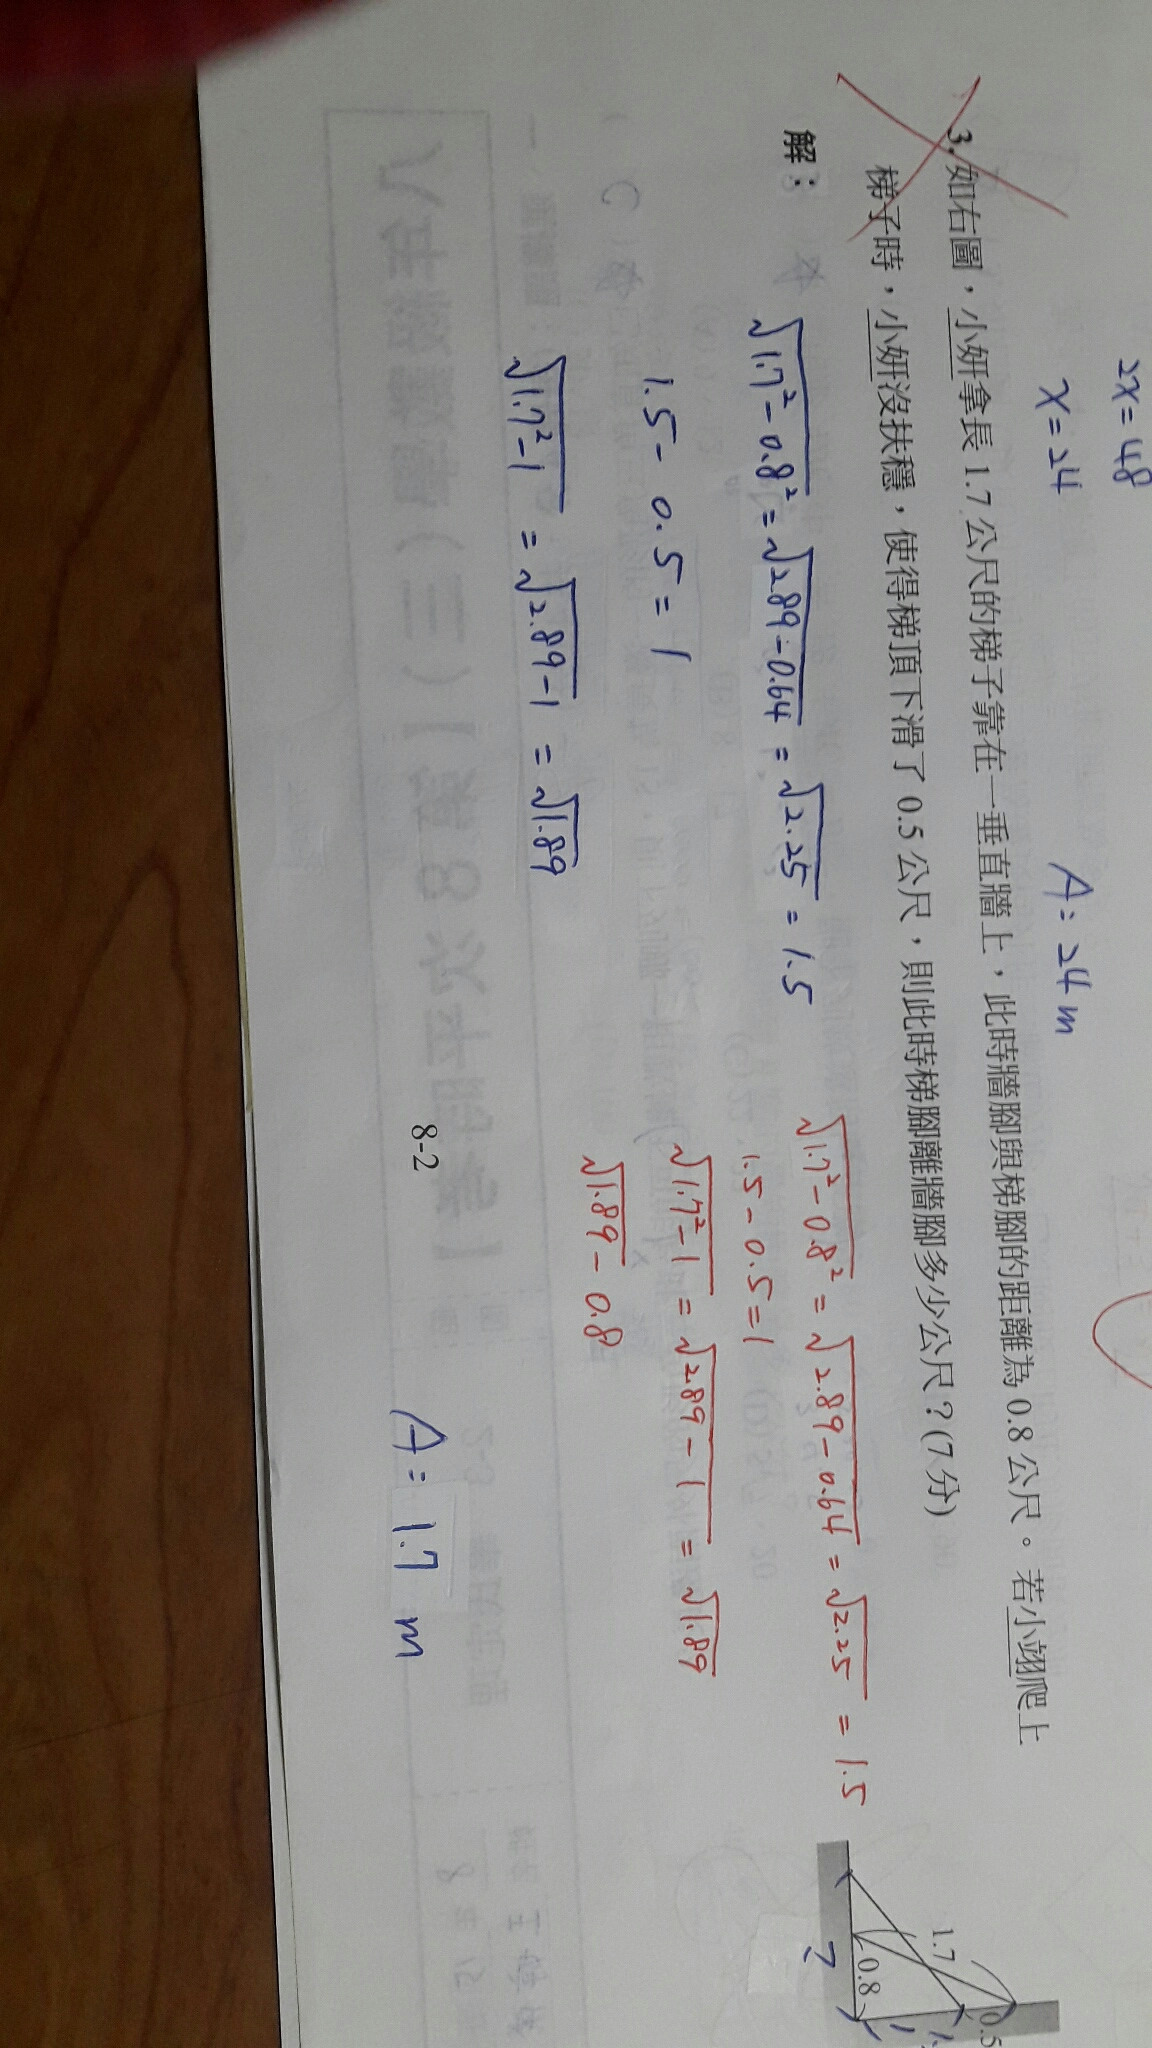 2x=48
x=24
A=24m
3. 如右圖，小妍拿長 1.7 公尺的梯子靠在一垂直牆上，此時牆腳與梯腳的距離為 0.8 公尺。若小翊爬上
梯子時，小妍沒扶穩，使得梯頂下滑了 0.5 公尺，則此時梯腳離牆腳多少公尺？(7 分)
解：
√1.7²-0.8² = √2.89-0.64 = √2.25 = 1.5
1.5 - 0.5 = 1
√1.7²-1 = √2.89-1 = √1.89
√1.7²-0.8² = √2.89-0.64 = √2.25 = 1.5
1.5-0.5=1
√1.7²-1 = √2.89-1 = √1.89
√1.89-0.8
A=1.7 m
1.7
0.8
0.5
8-2